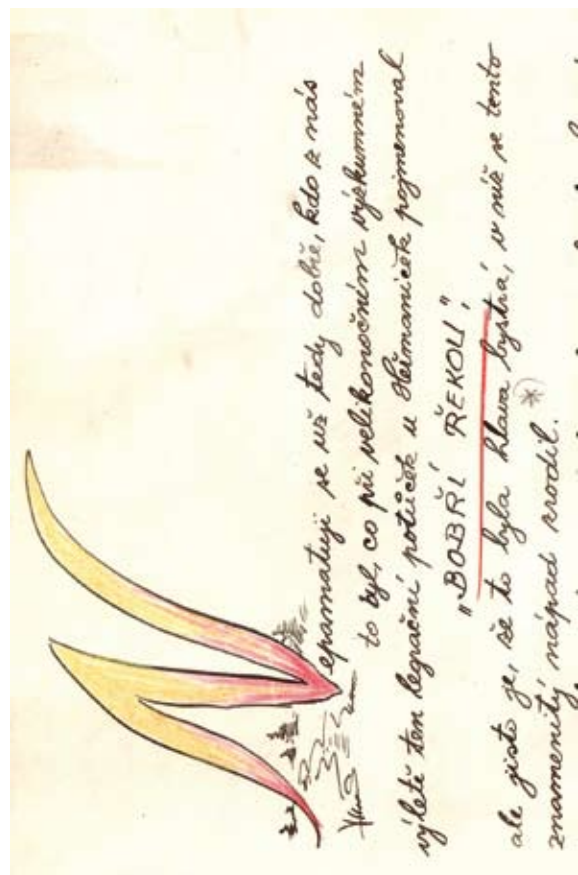 Nepamatuji se už tedy dobře, kdo z nás
to byl, co při velikonočním výzkumném
výletě ten legrační potůček u Heřmaniček pojmenoval
„BOBŘÍ ŘEKOU",
ale jisto je, že to byla hlava bystrá, v níž se tento
znamenitý nápad zrodil. *)